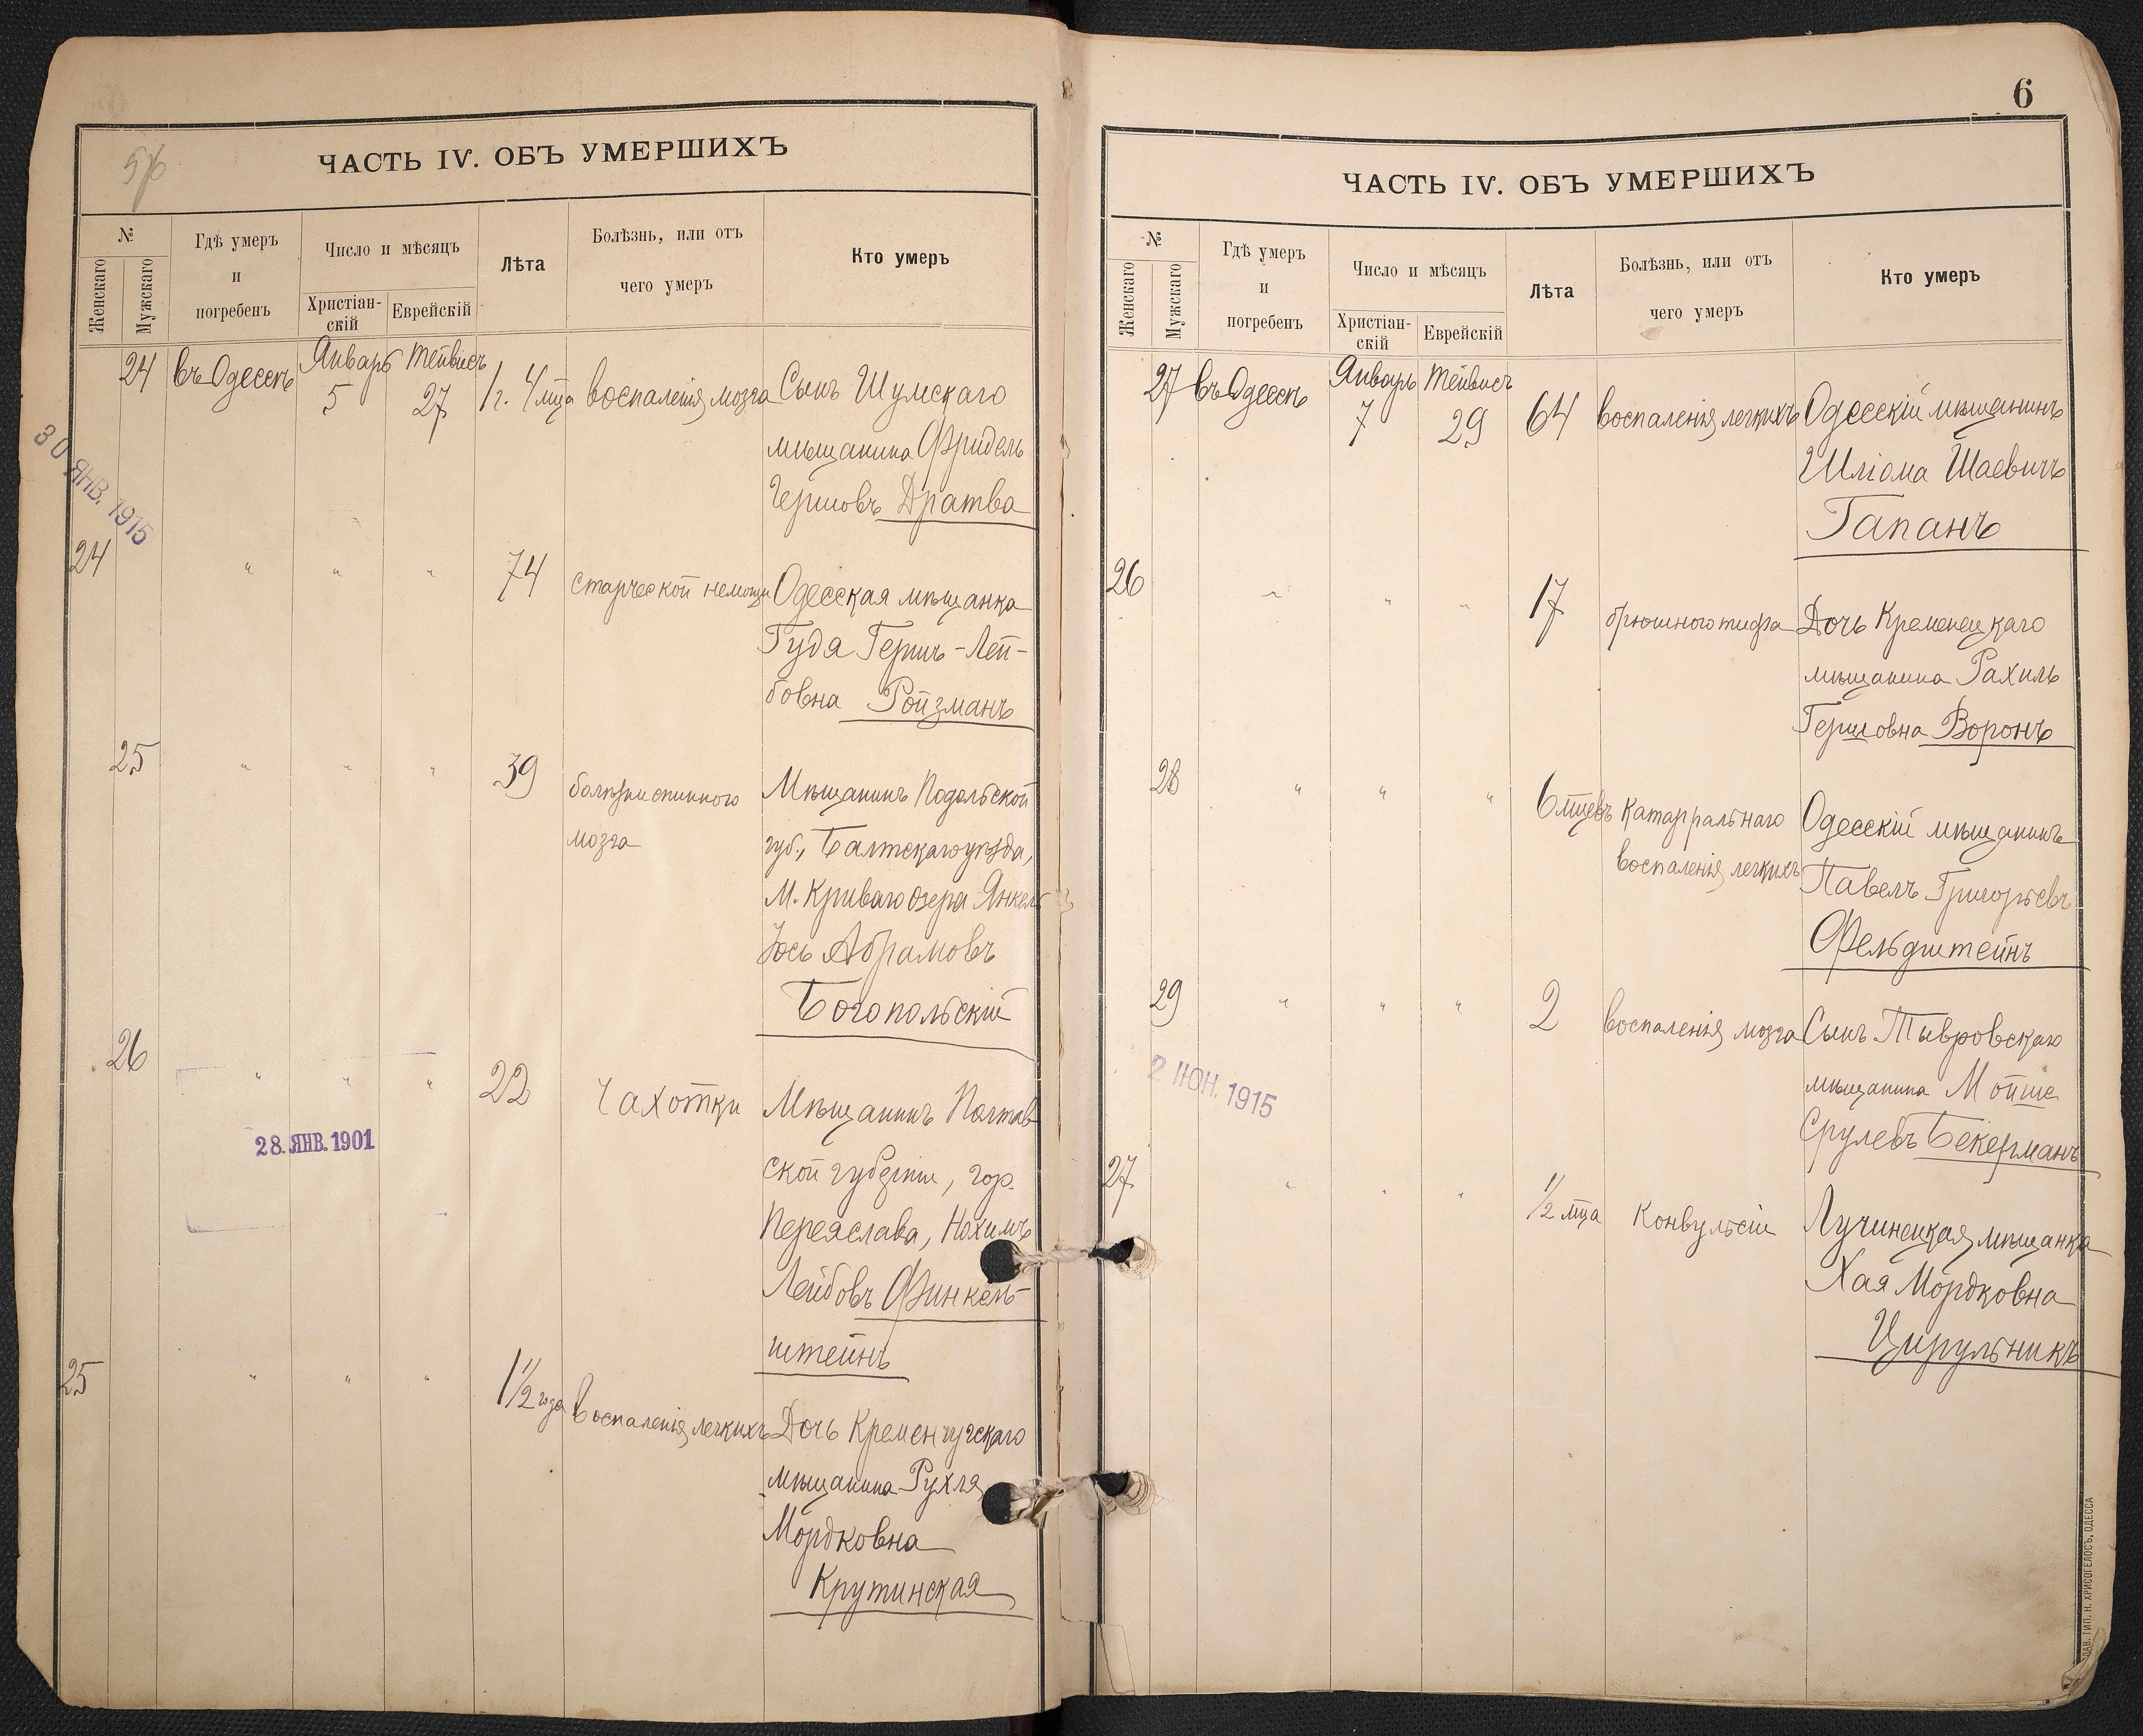 ЧАСТЬ IV. ОБЪ УМЕРШИХЪ
№
Женскаго
Мужскаго
Гдѣ умеръ
и
погребенъ
Число и мѣсяцъ
Христіан-
скій
Еврейскій
Лѣта
Болѣзнь, или отъ
чего умеръ
Кто умеръ
24 въ Одессѣ Январь 5 Тейвисъ 27 1 г. 4 мца воспаленія мозга Сынъ Шумскаго
мѣщанина Фридель
Гершовъ Дратва
30 ЯНВ. 1915
24 " " " 74 старческой немощи Одесская мѣщанка
Гудя Гершъ-Лей-
бовна Ройзманъ
25 " " " 39 болѣзни спинного Мѣщанинъ Подольской
мозга губ., Балтскаго уѣзда,
м. Криваго озера Янкель
Іось Абрамовъ
Богопольскій
26 " " " 22 Чахотки Мѣщанинъ Полтав-
28. ЯНВ. 1901
ской губерніи, гор.
Переяслава, Нохимъ
Лейбовъ Финкель-
штейнъ
25 " " " 1 1/2 года воспаленія легкихъ Дочь Кременчугскаго
мѣщанина Рухля
Мордковна
Крутинская
6
ЧАСТЬ IV. ОБЪ УМЕРШИХЪ
№
Женскаго
Мужскаго
Гдѣ умеръ
и
погребенъ
Число и мѣсяцъ
Христіан-
скій
Еврейскій
Лѣта
Болѣзнь, или отъ
чего умеръ
Кто умеръ
27 въ Одессѣ Январь 7 Тейвисъ 29 64 воспаленія легкихъ Одесскій мѣщанинъ
Шліома Шаевичъ
Гапанъ
26 " " " 17 брюшного тифа Дочь Кременецкаго
мѣщанина Рахиль
Гершовна Воронъ
28 " " " 6 мцевъ катарральнаго Одесскій мѣщанинъ
воспаленія легкихъ Павелъ Григорьевъ
Фельдштейнъ
29 " " " 2 воспаленія мозга Сынъ Тывровскаго
мѣщанина Мойше
Срулевъ Бекерманъ
2 ІЮН. 1915
27 " " " 1/2 мца Конвульсіи Лучинецкая мѣщанка
Хая Мордковна
Цирульникъ
ТИП. Н. ХРИСОГЕЛОСЪ, ОДЕССА